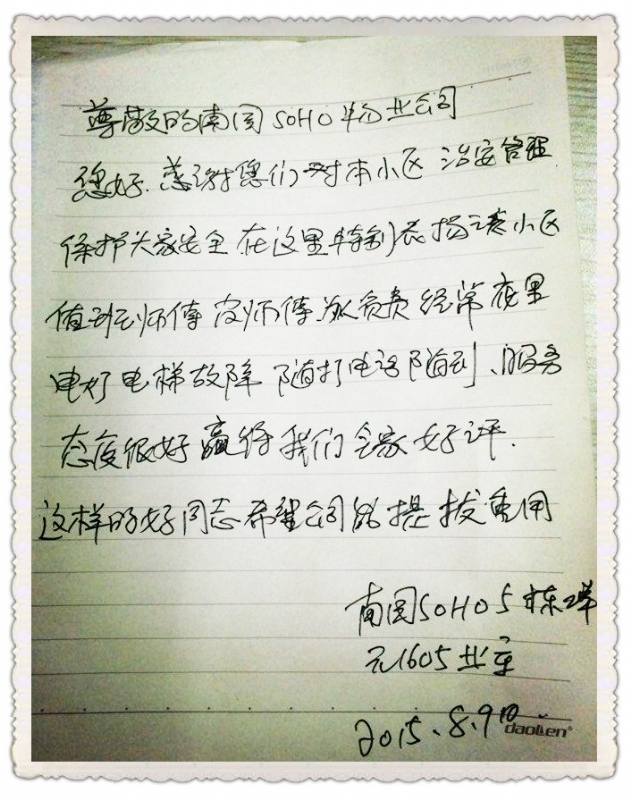 尊敬的南国SOHO物业公司
您好.感谢您们对本小区治安管理
保护大家安全在这里特别表扬该小区
值班师傅 皮师傅.认负责经常夜里
电灯电梯故障 随打电话随到、服务
态度很好赢得我们全家好评.
这样的好同志希望公司能提拔重用
南国SOHO5栋2单
元1605业主
2015.8.9日
daolien®